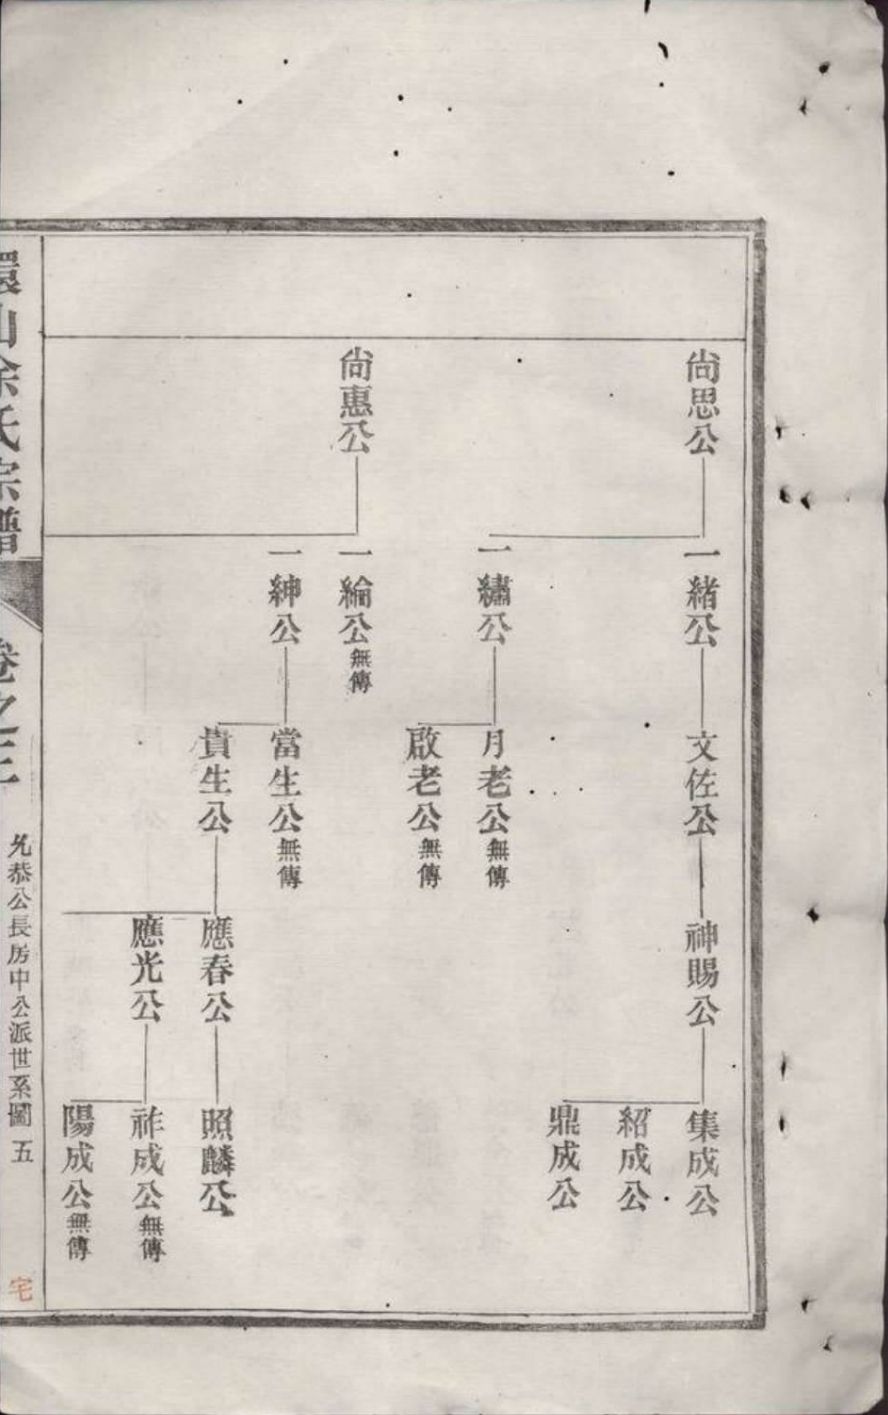 尙思公
一緒公
文佐公
神賜公
集成公
紹成公
鼎成公
一繡公
月老公無傳
啟老公無傳
尙惠公
一綸公無傳
一紳公
當生公無傳
貴生公
應春公
照麟公
應光公
祚成公無傳
陽成公無傳
環山余氏宗譜
卷之三
允恭公長房中公派世系圖 五
宅